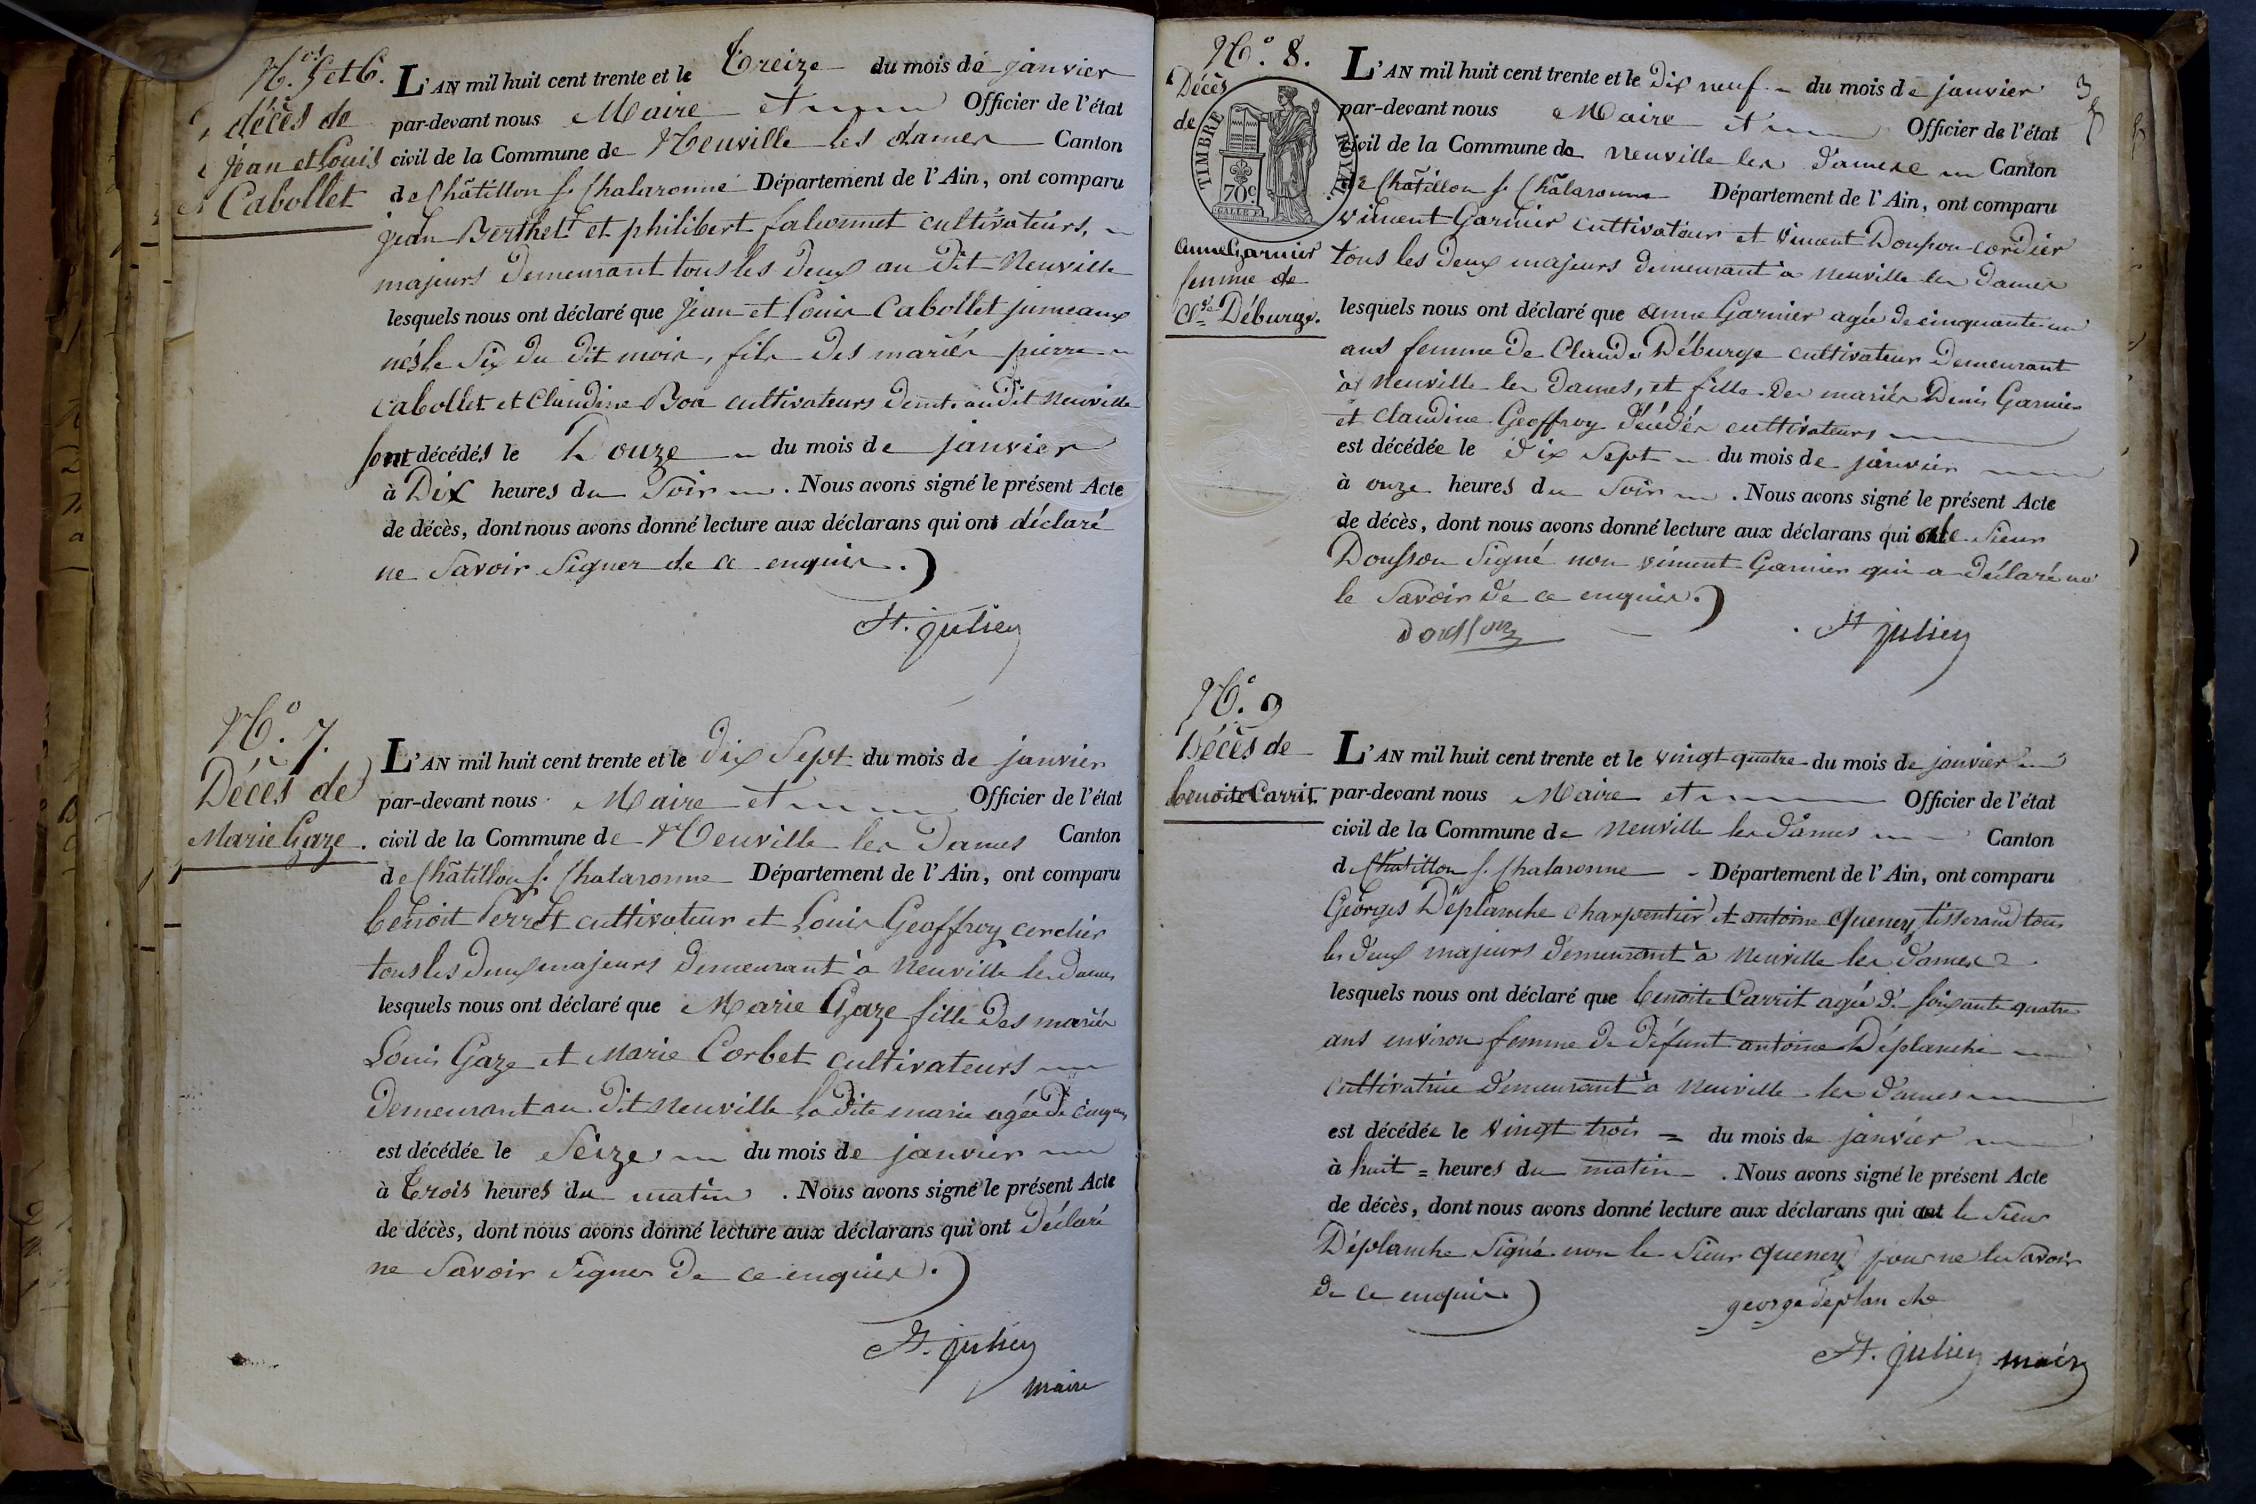 N.os 5 et 6.
décès de
Jean et Louis
Cabollet
L'AN mil huit cent trente et le Treize du mois de janvier
par-devant nous Maire et Officier de l'état
civil de la Commune de Neuville les dames Canton
de Châtillon s. Chalaronne Département de l'Ain, ont comparu
jean Berthelt et philibert falconnet cultivateurs,
majeurs demeurant tous les deux au dit Neuville
lesquels nous ont déclaré que jean et Louis Cabollet jumeaux
nés le six du dit mois, fils des mariés pierre
Cabollet et Claudine Bon cultivateurs demt. au dit Neuville
sont décédés le Douze du mois de janvier
à Dix heures du Soir . Nous avons signé le présent Acte
de décès, dont nous avons donné lecture aux déclarans qui ont déclaré
ne Savoir Signer de ce enquis.
St. julien
N.o 7.
Décès de
Marie Gaze.
L'AN mil huit cent trente et le dix Sept du mois de janvier
par-devant nous Maire et Officier de l'état
civil de la Commune de Neuville les Dames Canton
de Châtillon s. Chalaronne Département de l'Ain, ont comparu
benoit Perret cultivateur et Louis Geoffroy cerclier
tous les deux majeurs demeurant à Neuville les dames
lesquels nous ont déclaré que Marie Gaze fille des mariés
Louis Gaze et Marie Corbet cultivateurs
demeurant au dit Neuville la dite marie agée de cinq ans
est décédée le Seize du mois de janvier
à Trois heures du matin . Nous avons signé le présent Acte
de décès, dont nous avons donné lecture aux déclarans qui ont Déclaré
ne Savoir Signer de ce enquis.
St. julien
maire
3
N.o 8.
Décès
de
TIMBRE ROYAL.
70c
anne Garnier
femme de
Cl.de Déburge.
L'AN mil huit cent trente et le Dix neuf du mois de janvier
par-devant nous Maire et Officier de l'état
civil de la Commune de Neuville les dames Canton
de Châtillon s. Châlaronne Département de l'Ain, ont comparu
vincent Garnier cultivateur et vincent Dousson cordier
tous les deux majeurs demeurant à Neuville les dames
lesquels nous ont déclaré que anne Garnier agée de cinquante un
ans femme de Claude Déburge cultivateur demeurant
à Neuville les dames, et fille des mariés Denis Garnier
et claudine Geoffroy décédés cultivateurs
est décédée le dix Sept du mois de janvier
à onze heures du Soir . Nous avons signé le présent Acte
de décès, dont nous avons donné lecture aux déclarans qui ont le Sieur
Dousson Signé non vincent Garnier qui a déclaré ne
le Savoir de ce enquis.
dousson
St julien
N.o 9
Décès de
benoite Carrit.
L'AN mil huit cent trente et le vingt quatre du mois de janvier
par-devant nous Maire et Officier de l'état
civil de la Commune de Neuville les dames Canton
de Châtillon s. Chalaronne Département de l'Ain, ont comparu
Georges Déplanche charpentier et antoine queney tisserand tous
les deux majeurs demeurant à Neuville les dames
lesquels nous ont déclaré que benoite Carrit agée de soixante quatre
ans environ femme de défunt antoine Déplanche
cultivatrice demeurant à Neuville les dames
est décédée le vingt trois du mois de janvier
à huit heures du matin . Nous avons signé le présent Acte
de décès, dont nous avons donné lecture aux déclarans qui ont le Sieur
Déplanche Signé non le Sieur queney pour ne le Savoir
de ce enquis
george deplanche
St. julien maire